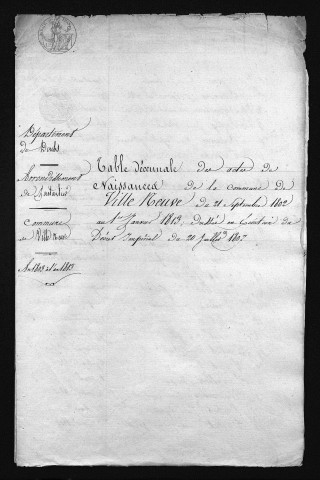 Département
du Doubs
Arrondissement
de Pontarlier
Commune
de Ville Neuve
An 1803 à l'an 1813
Table décennale des actes de
Naissances de la commune de
Ville Neuve du 21 Septembre 1802
au 1er Janvier 1813. dressée en Exécution du
Décret Impérial du 20 Juillet 1807